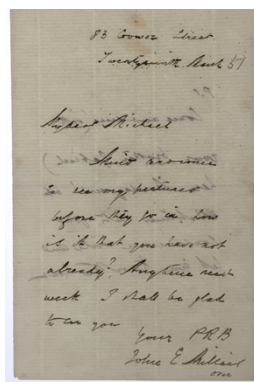 83 Gower Street
Twentyninth March 51
My dear Michael
Should
to see my pictures
before they go in, how
is it that you have not
already? Anytime next
week I shall be glad
to see you
Your PRB
John E Millais
over